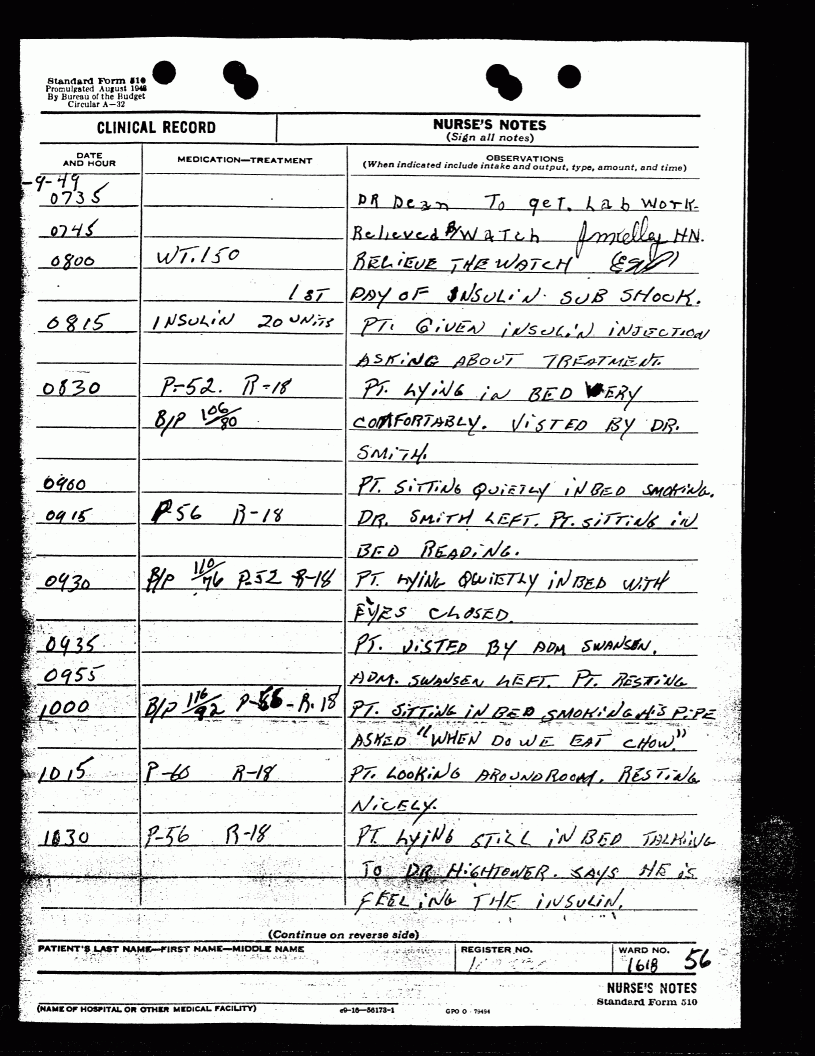 Standard Form 510
Promulgated August 1948
By Bureau of the Budget
Circular A—32
CLINICAL RECORD
NURSE'S NOTES
(Sign all notes)
DATE AND HOUR
MEDICATION—TREATMENT
OBSERVATIONS
(When indicated include intake and output, type, amount, and time)
-9-49
0735 DR Dean To get. Lab Work
0745 Relieved Watch HN.
0800 WT. 150 RELIEVE THE WATCH
1ST DAY OF INSULIN SUB SHOCK.
0815 INSULIN 20 UNITS PT. GIVEN INSULIN INJECTION
ASKING ABOUT TREATMENT.
0830 P-52. R-18 PT. LYING IN BED VERY
B/P 106/80 COMFORTABLY. VISTED BY DR.
SMITH.
0900 PT. SITTING QUIETLY IN BED SMOKING.
0915 P 56 R-18 DR. SMITH LEFT. PT. SITTING IN
BED READING.
0930 B/P 110/76 P-52 R-18 PT LYING QWIETLY IN BED WITH
EYES CLOSED.
0935 PT. VISTED BY ADM SWANSEN.
0955 ADM. SWANSEN LEFT. PT. RESTING
1000 B/P 116/92 P-56 - R. 18 PT. SITTING IN BED SMOKING HIS PIPE
ASKED "WHEN DO WE EAT CHOW."
1015 P-60 R-18 PT. LOOKING AROUND ROOM. RESTING
NICELY.
1030 P-56 R-18 PT LYING STILL IN BED TALKING
TO DR HIGHTOWER. SAYS HE IS
FEELING THE INSULIN.
(Continue on reverse side)
PATIENT'S LAST NAME—FIRST NAME—MIDDLE NAME
REGISTER NO.
WARD NO.
1618 56
NURSE'S NOTES
Standard Form 510
(NAME OF HOSPITAL OR OTHER MEDICAL FACILITY)
c9—16—56173-1
GPO O - 79494